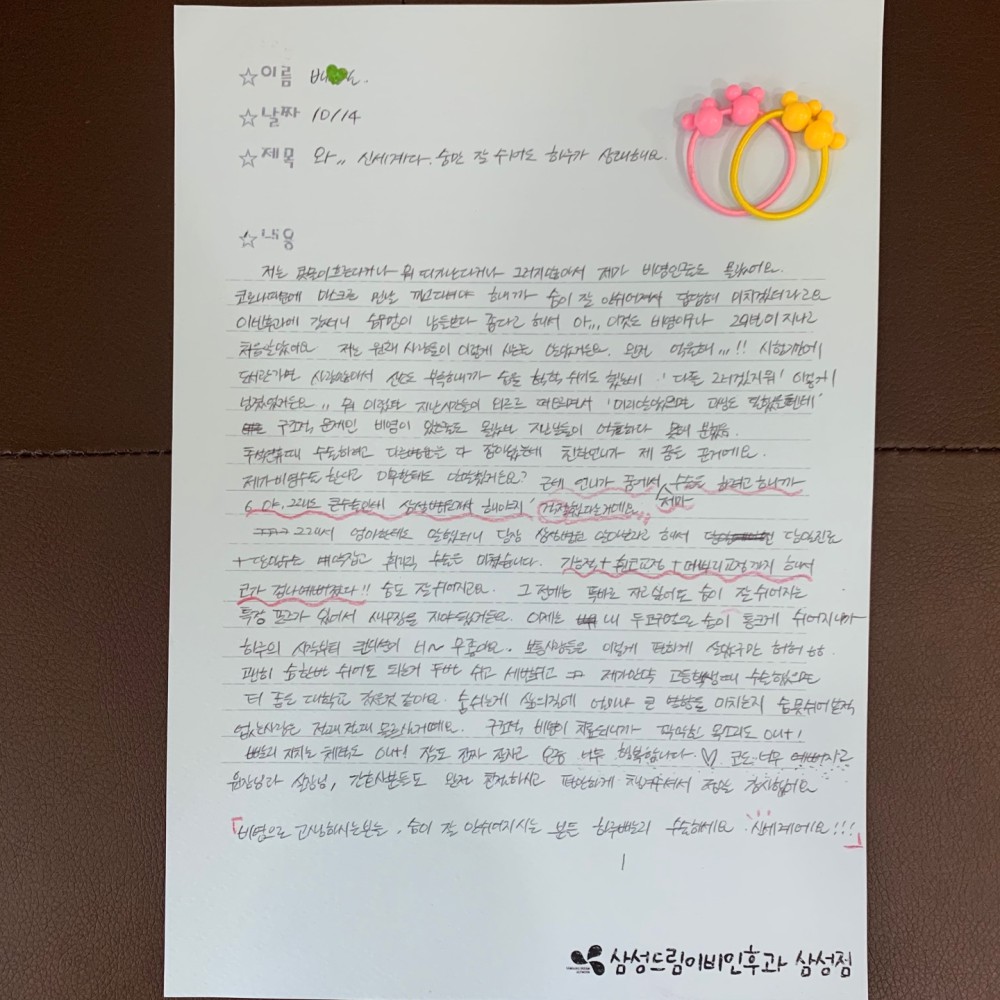 ☆이름 배
☆날짜 10/14
☆제목 와,, 신세계다. 숨만 잘 쉬어도 하루가 상쾌해요.
☆내용
저는 콧물이 흐른다거나 뭐 따지난다거나 그러지않아서 제가 비염인줄도 몰랐어요.
코로나때문에 마스크를 맨날 끼고다녀야 하니까 숨이 잘 안쉬어져서 답답해 미치겠더라고요
이비인후과에 갔더니 숨구멍이 남들보다 좁다고 해서 아,,, 이것도 비염이구나 29년이 지나고
처음알았어요. 저는 원래 사람들이 이렇게 사는줄 알았거든요. 완전 억울해,,,!! 시험기간에
도서관가면 사람많아서 산소 부족하니까 숨을 헉헉 쉬기도 했는데 '다들 그러겠지뭐' 이렇게
넘겼었거든요,, 뭐 이랬던 지난시간들이 와르르 떠오르면서 '미리알았으면 고생도 덜했을텐데'
구조적 문제인 비염이 있는줄도 몰랐던 지난날들이 억울하다 못해 분했음.
추석연휴때 수술하려고 다른병원은 다 잡아놨는데 친한언니가 제 꿈을 꾼거에요.
제가 비염수술 한다고 아무한테도 안말했거든요? 근데 언니가 꿈에서 제가 수술을 하려고 하니까
'야, 그래도 큰수술인데 삼성병원가서 해야지' 걱정했다는거예요
그래서 엄마한테도 말했더니 당장 삼성병원 알아보라고 해서 당일진료
+당일수술 예약잡고 휘리릭 수술은 마쳤습니다. 기능적+휘코교정+매부리교정까지 해서
코가 겁나예뻐졌다!! 숨도 잘쉬어지고요. 그 전에는 똑바로 자고싶어도 숨이 잘 쉬어지는
특정 포즈가 있어서 새우잠을 자야됐었거든요. 이제는 내 두콧구멍으로 숨이 통크게 쉬어지니까
하루의 시작부터 컨디션이 너~무좋아요. 보통사람들은 이렇게 편하게 살았구만 허허
괜히 숨한번 쉬어도 되는거 두번 쉬고 세번쉬고 제가만약 고등학생때 수술했으면
더 좋은 대학교 갔을것 같아요. 숨쉬는게 삶의질에 얼마나 큰 영향을 미치는지 숨못쉬어본적
없는사람은 전혀전혀 모르실거예요. 구조적 비염이 치료되니까 퍽퍽한 목소리도 out!
빨리 지치는 체력도 out! 잠도 진짜 잘자고 요즘 너무 행복합니다.♡ 코도 너무 예뻐지고
원장님과 실장님, 간호사분들도 완전 친절하시고 편안하게 챙겨주셔서 정말 감사했어요
「비염으로 고생하시는분들, 숨이 잘 안쉬어지시는 분들 하루빨리 수술하세요 신세계에요!!!」
삼성드림이비인후과 삼성점